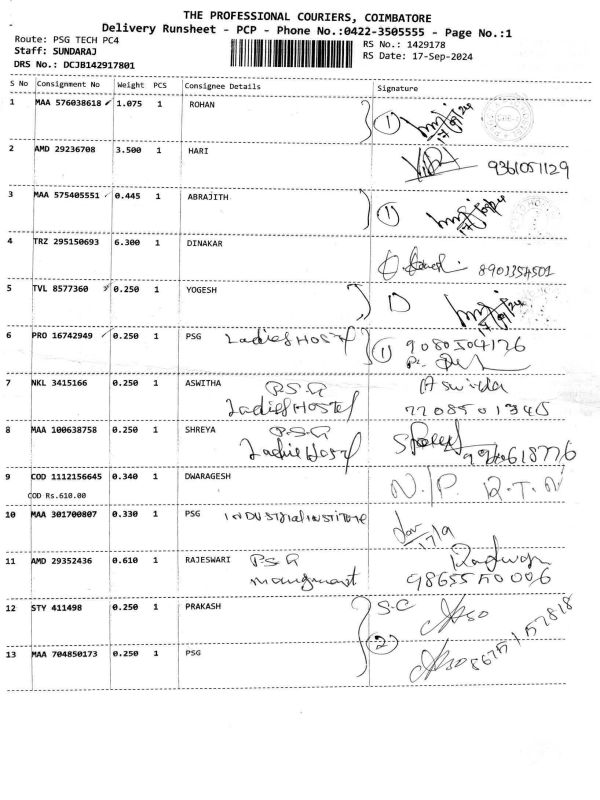 THE PROFESSIONAL COURIERS, COIMBATORE
Delivery Runsheet - PCP - Phone No.:0422-3505555 - Page No.:1
Route: PSG TECH PC4
RS No.: 1429178
Staff: SUNDARAJ
RS Date: 17-Sep-2024
DRS No.: DCJB142917801
S No Consignment No Weight PCS Consignee Details Signature
1 MAA 576038618 ✓ 1.075 1 ROHAN 1
17/09/24
2 AMD 29236708 3.500 1 HARI 9361051129
3 MAA 575405551 ✓ 0.445 1 ABRAJITH 1
4 TRZ 295150693 6.300 1 DINAKAR 8901354501
5 TVL 8577360 0.250 1 YOGESH 1
17/09/24
6 PRO 16742949 ✓ 0.250 1 PSG Ladies Hostel 1 9080504126
7 NKL 3415166 0.250 1 ASWITHA P.S.G Aswitha
Ladies Hostel 7708501345
8 MAA 100638758 0.250 1 SHREYA P.S.G
Ladies Hostel
9 COD 1112156645 0.340 1 DWARAGESH N/P R.T.N
COD Rs.610.00
10 MAA 301700807 0.330 1 PSG INDUSTRIAL INSTITUTE
17/9
11 AMD 29352436 0.610 1 RAJESWARI P.S.G
9865550006
12 STY 411498 0.250 1 PRAKASH S.C
2
13 MAA 704850173 0.250 1 PSG 86751 57818